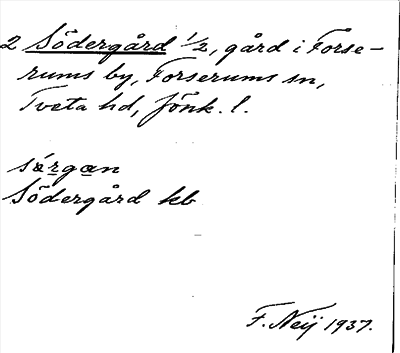 2 Södergård 1/2, gård i Forse-
rums by, Forserums sn,
Tveta hd, Jönk. l.
sǿrgan
Södergård kb
F. Neij 1937.